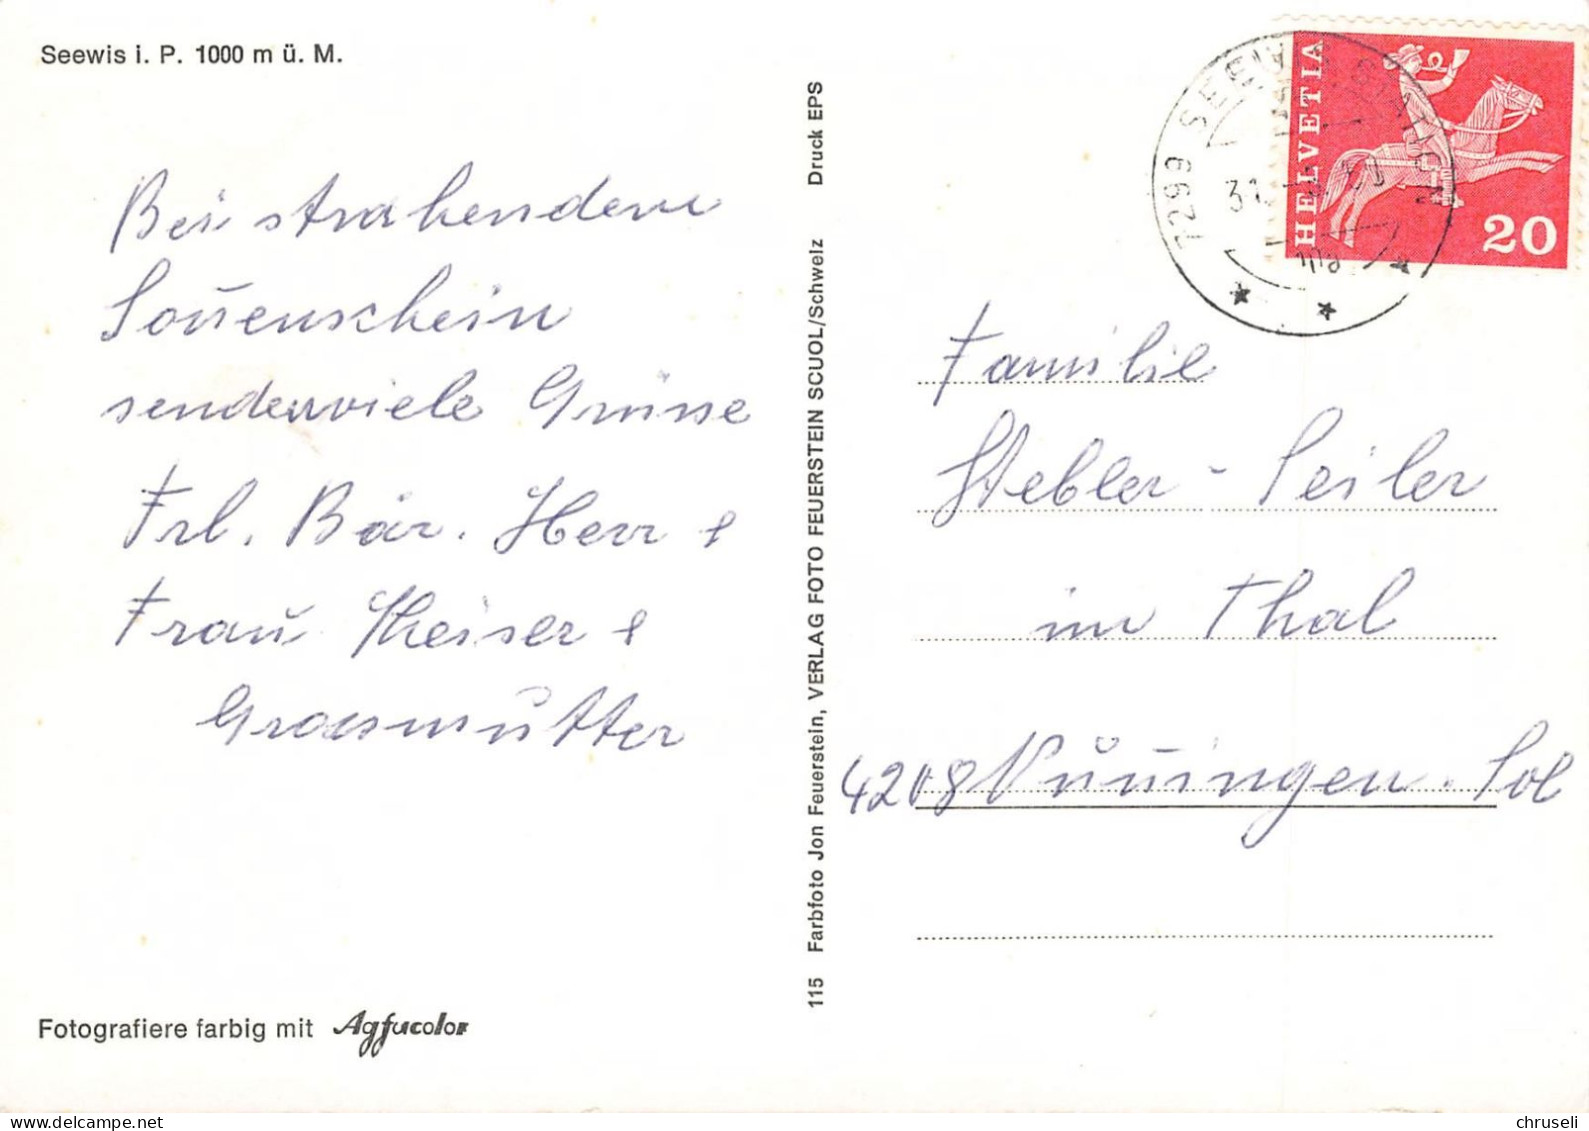 Seewis i. P. 1000 m ü. M.
Bei strahendem
Sonnenschein
senden viele Grüsse
Frl. Bär. Herr &
Frau Theiser &
Grossmutter
Fotografiere farbig mit Agfacolor
115 Farbfoto Jon Feuerstein, VERLAG FOTO FEUERSTEIN SCUOL/Schweiz Druck EPS
7299 SEEWIS STATION
31.
HELVETIA
20
Familie
Stebler-Seiler
im Thal
4208 Nunningen. Sol
chruseli